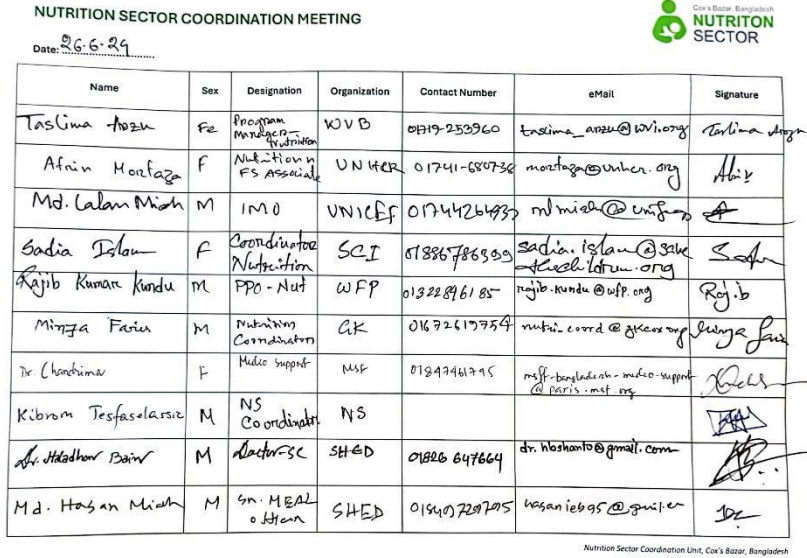 NUTRITION SECTOR COORDINATION MEETING
Cox's Bazar, Bangladesh
NUTRITON
SECTOR
Date: 26.6.24
Name Sex Designation Organization Contact Number eMail Signature
Taslima Anzu Fe Program Manager- Nutrition WVB 01719-253960 taslima_anzu@wvi.org Taslima
Afrin Mortaza F Nutrition n FS Associate UNHCR 01741-680738 mortaza@unhcr.org
Md. Lalan Miah M IMO UNICEF mlmiah@
Sadia Islam F Coordinator Nutrition SCI 01886786999 sadia.islam@savethechildren.org
Rajib Kumar Kundu M PPO-Nut WFP 01322896185 rajib.kundu@wfp.org Rajib
Minza Farius M Nutrition Coordinator GK 01672619754 nutri-coord@gkcox.org
Dr. Chandrima F Medco support MSF 01847461795 msff-bangladesh-medco-support@paris.msf.org
Kibrom Tesfaselassie M NS Coordinator NS
Dr. M Doctor-SC SHED 01826 647664 dr.hbshanto@gmail.com
Md. Hasan Miah M Sn. MEAL SHED
Nutrition Sector Coordination Unit, Cox's Bazar, Bangladesh